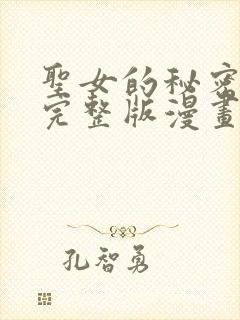 聖女的秘密
完整版漫畫
孔智勇